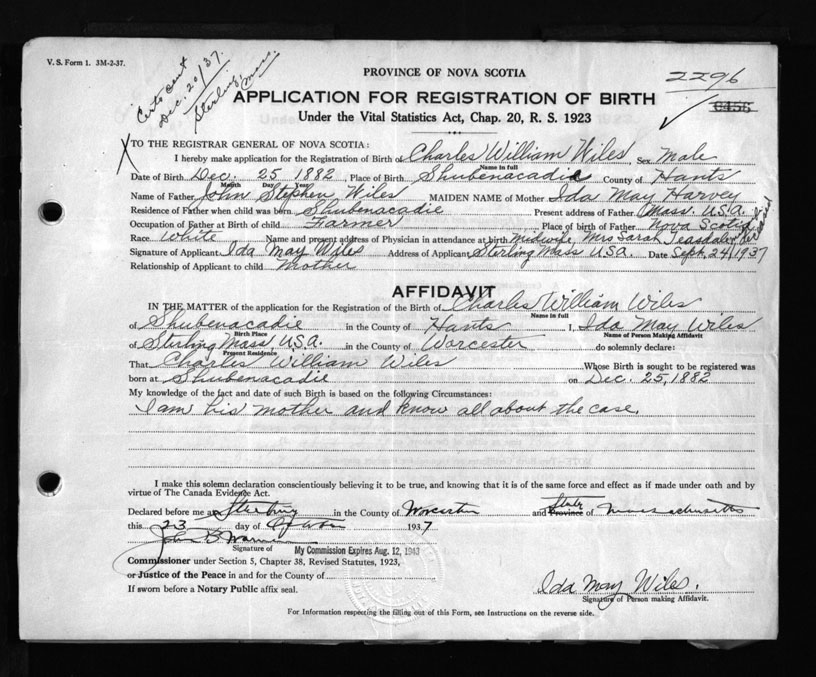 V. S. Form 1. 3M-2-37.
Certs sent
Dec. 20/37.
Sterling, Mass.
PROVINCE OF NOVA SCOTIA
2296
APPLICATION FOR REGISTRATION OF BIRTH
Under the Vital Statistics Act, Chap. 20, R. S. 1923
TO THE REGISTRAR GENERAL OF NOVA SCOTIA:
I hereby make application for the Registration of Birth of Charles William Wiles Sex Male
Name in full
Date of Birth Dec. 25 1882, Place of Birth Shubenacadie County of Hants
Month Day Year
Name of Father John Stephen Wiles MAIDEN NAME of Mother Ida May Harvey
Residence of Father when child was born Shubenacadie Present address of Father Mass. U.S.A.
Occupation of Father at Birth of child Farmer Place of birth of Father Nova Scotia
Race White Name and present address of Physician in attendance at birth Midwife, Mrs Sarah Teasdale
Signature of Applicant Ida May Wiles Address of Applicant Sterling Mass U.S.A. Date Sept. 24/1937
Relationship of Applicant to child Mother
AFFIDAVIT
IN THE MATTER of the application for the Registration of the Birth of Charles William Wiles
Name in full
of Shubenacadie in the County of Hants I, Ida May Wiles
Birth Place Name of Person Making Affidavit
of Sterling Mass. U.S.A. in the County of Worcester do solemnly declare:
Present Residence
That Charles William Wiles Whose Birth is sought to be registered was
born at Shubenacadie on Dec. 25, 1882
My knowledge of the fact and date of such Birth is based on the following Circumstances:
I am his mother and know all about the case.
I make this solemn declaration conscientiously believing it to be true, and knowing that it is of the same force and effect as if made under oath and by
virtue of The Canada Evidence Act.
Declared before me at Sterling in the County of Worcester and State Province of Massachusetts
this 23 day of October 1937
John B Warner
Signature of My Commission Expires Aug. 12, 1943
Commissioner under Section 5, Chapter 38, Revised Statutes, 1923,
or Justice of the Peace in and for the County of
If sworn before a Notary Public affix seal.
Ida May Wiles.
Signature of Person making Affidavit.
For Information respecting the filling out of this Form, see Instructions on the reverse side.